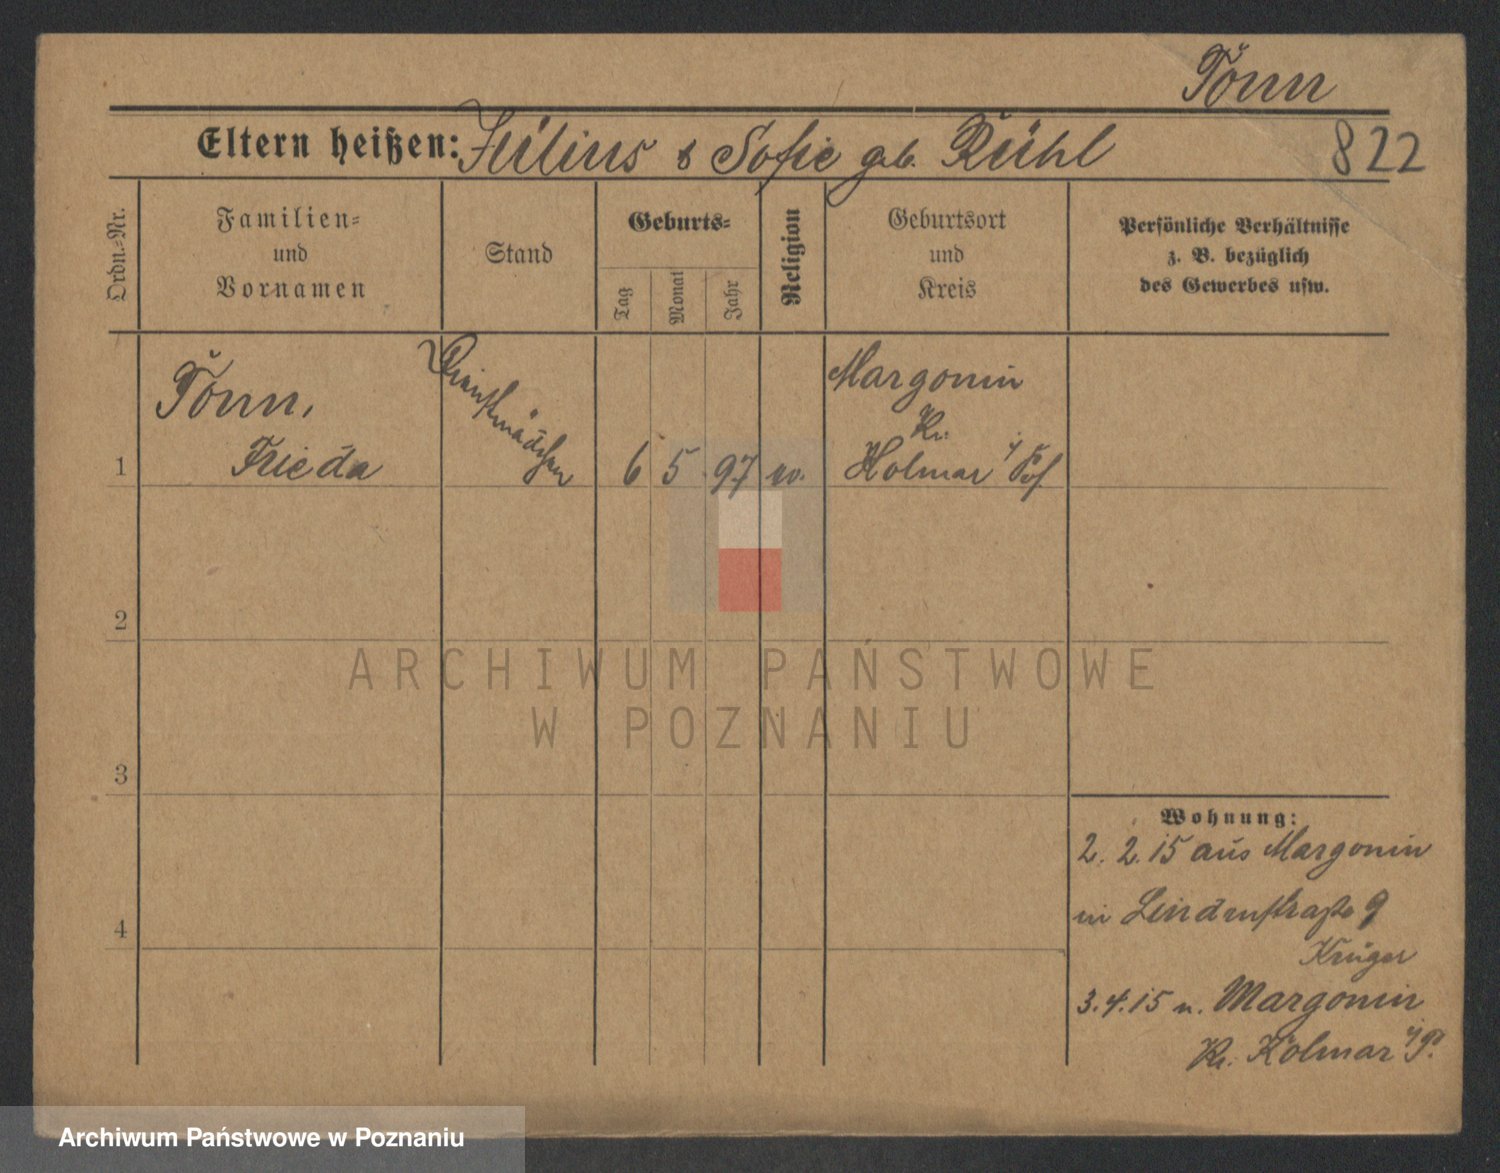 Tonn
Eltern heißen: Julius & Sofie geb. Rühl
822
Ordn.-Nr.
Familien-
und
Vornamen
Stand
Geburts-
Tag
Monat
Jahr
Religion
Geburtsort
und
Kreis
Persönliche Verhältnisse
z. B. bezüglich
des Gewerbes usw.
1
Tonn,
Frieda
Dienstmädchen
6
5
97
Margonin
Kr.
Kolmar i/Pos.
2
3
4
Wohnung:
2. 2. 15 aus Margonin
in Lindenstraße 9
Krüger
3. 4. 15 n. Margonin
Kr. Kolmar i/P.
ARCHIWUM PAŃSTWOWE
W POZNANIU
Archiwum Państwowe w Poznaniu